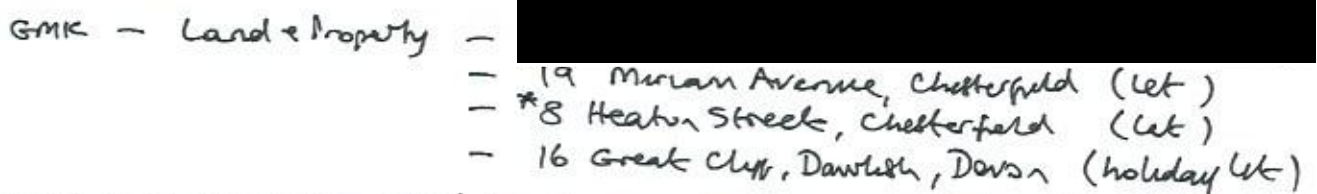 GMK - Land & Property -
- 19 Miriam Avenue, Chesterfield (let)
- *8 Heaton Street, Chesterfield (let)
- 16 Great Cliff, Dawlish, Devon (holiday let)